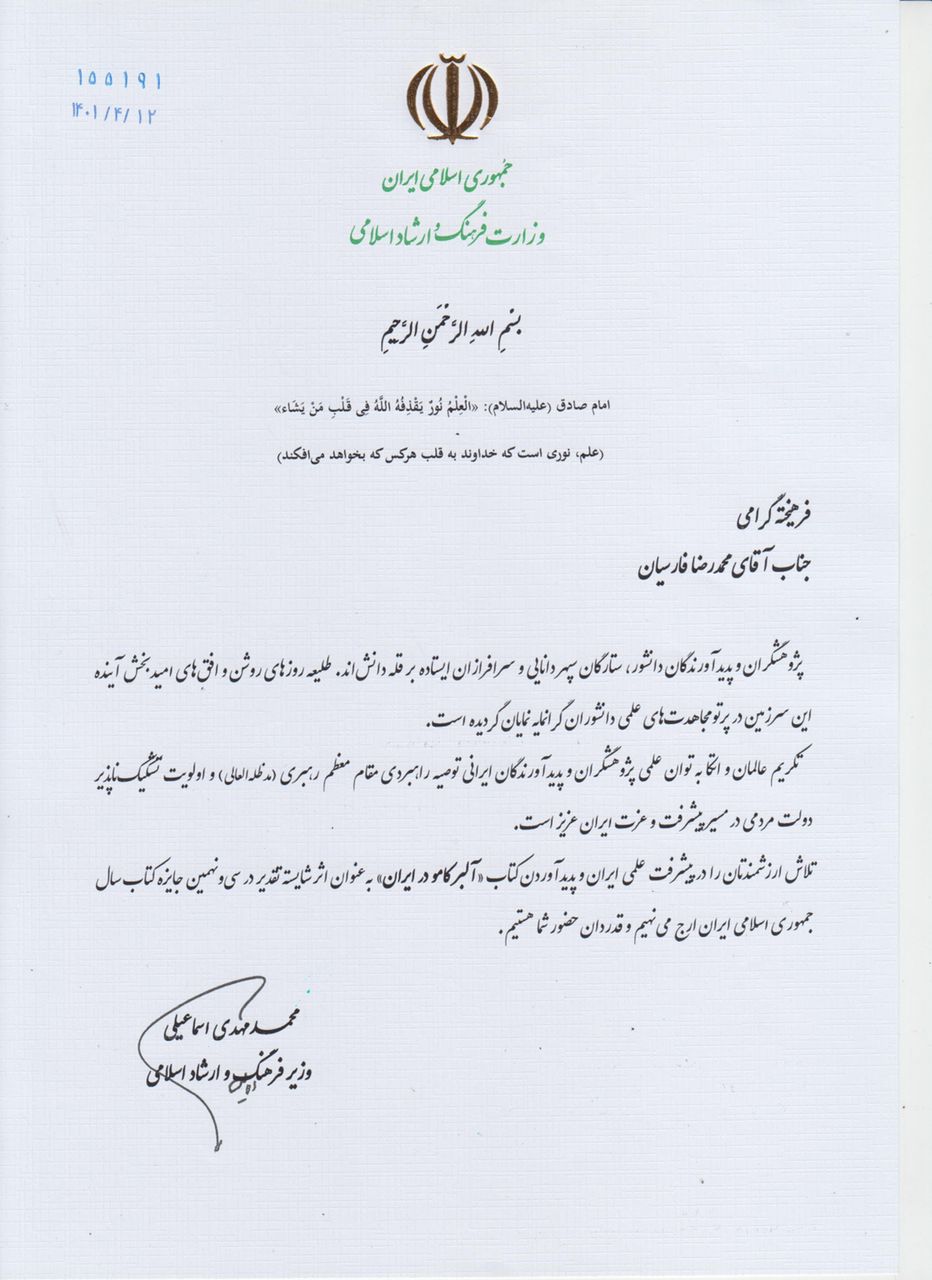 ۱۵۵۱۹۱
۱۴۰۱/۴/۱۲
جمهوری اسلامی ایران
وزارت فرهنگ و ارشاد اسلامی
بِسْمِ اللهِ الرَّحْمَنِ الرَّحِیمِ
امام صادق (علیه‌السلام): «الْعِلْمُ نُورٌ یَقْذِفُهُ اللَّهُ فِی قَلْبِ مَنْ یَشَاء»
(علم، نوری است که خداوند به قلب هرکس که بخواهد می‌افکند)
فرهیخته گرامی
جناب آقای محمدرضا فارسیان
پژوهشگران و پدیدآورندگان دانشور، ستارگان سپهر دانایی و سرافرازان ایستاده بر قله دانش‌اند. طلیعه روزهای روشن و افق‌های امیدبخش آینده
این سرزمین در پرتو مجاهدت‌های علمی دانشوران گرانمایه نمایان گردیده است.
تکریم عالمان و اتکا به توان علمی پژوهشگران و پدیدآورندگان ایرانی توصیه راهبردی مقام معظم رهبری (مدظله‌العالی) و اولویت تشکیک‌ناپذیر
دولت مردمی در مسیر پیشرفت و عزت ایران عزیز است.
تلاش ارزشمندتان را در پیشرفت علمی ایران و پدیدآوردن کتاب «آلبر کامو در ایران» به عنوان اثر شایسته تقدیر در سی‌ونهمین جایزه کتاب سال
جمهوری اسلامی ایران ارج می‌نهیم و قدردان حضور شما هستیم.
محمدمهدی اسماعیلی
وزیر فرهنگ و ارشاد اسلامی